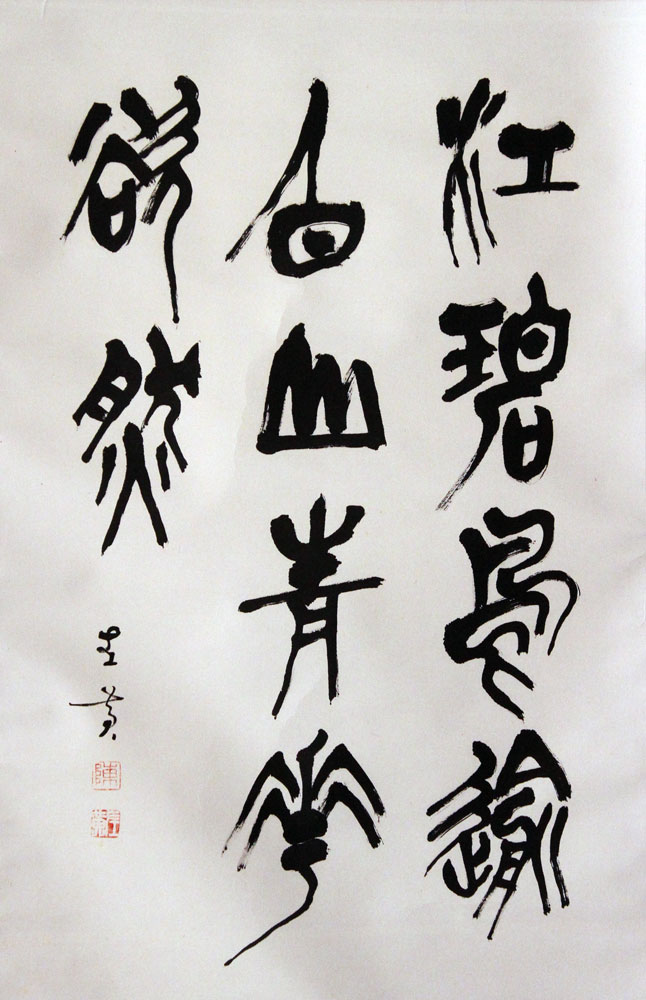 江碧鳥逾
白山青花
欲然
陳